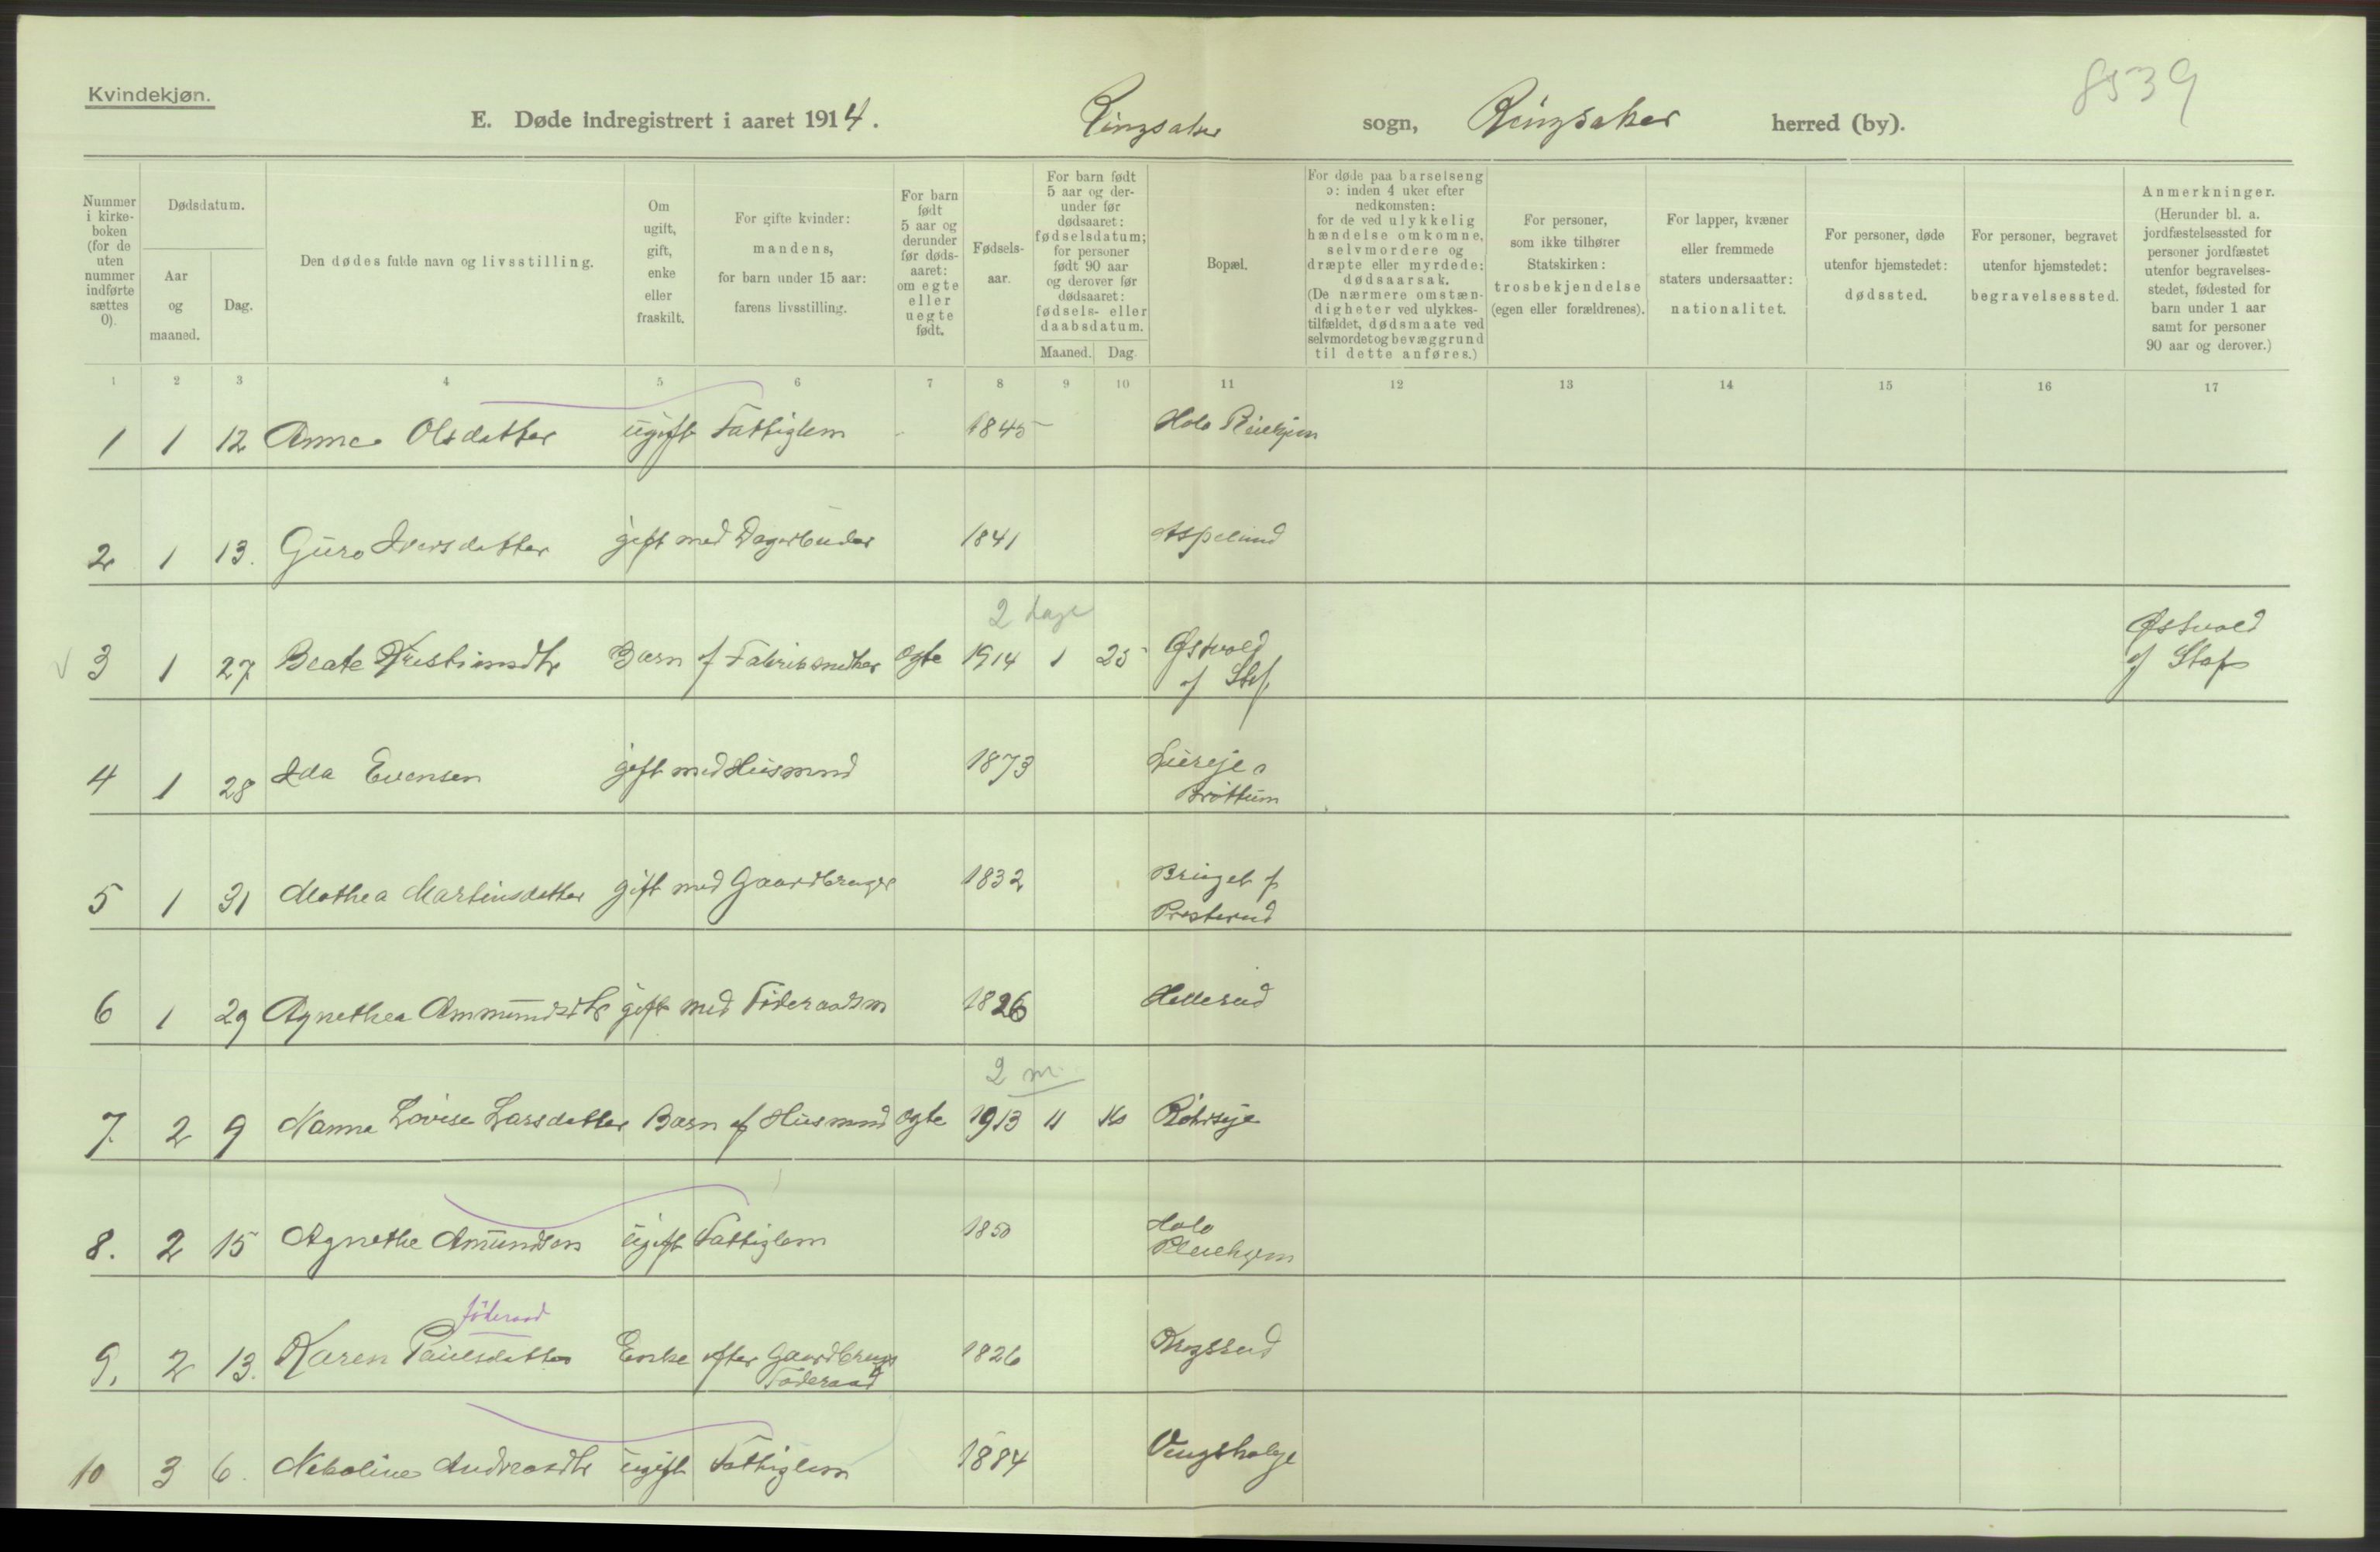 Kvindekjøn.
8539
E. Døde indregistrert i aaret 1914. Ringsaker sogn, Ringsaker herred (by).
Nummer i kirkeboken (for de uten nummer indførte sættes 0).
Dødsdatum.
Aar og maaned.
Dag.
Den dødes fulde navn og livsstilling.
Om ugift, gift, enke eller fraskilt.
For gifte kvinder: mandens, for barn under 15 aar: farens livsstilling.
For barn født 5 aar og derunder før dødsaaret: om egte eller uegte født.
Fødselsaar.
For barn født 5 aar og derunder før dødsaaret: fødselsdatum; for personer født 90 aar og derover før dødsaaret: fødsels- eller daabsdatum.
Maaned. Dag.
Bopæl.
For døde paa barselseng ɔ: inden 4 uker efter nedkomsten: for de ved ulykkelig hændelse omkomne, selvmordere og dræpte eller myrdede: dødsaarsak. (De nærmere omstændigheter ved ulykkestilfældet, dødsmaate ved selvmordet og bevæggrund til dette anføres.)
For personer, som ikke tilhører Statskirken: trosbekjendelse (egen eller forældrenes).
For lapper, kvæner eller fremmede staters undersaatter: nationalitet.
For personer, døde utenfor hjemstedet: dødssted.
For personer, begravet utenfor hjemstedet: begravelsessted.
Anmerkninger. (Herunder bl. a. jordfæstelsessted for personer jordfæstet utenfor begravelsesstedet, fødested for barn under 1 aar samt for personer 90 aar og derover.)
1 2 3 4 5 6 7 8 9 10 11 12 13 14 15 16 17
1 1 12 Anne Olsdatter ugift Fattiglem 1845 Holo Pleiehjem
2 1 13. Guro Iversdatter gift med Dagarbeider 1841 Aspelund
2 dage
3 1 27 Beate Kristiansdtr Barn af Fabriksmedker egte 1914 1 25 Østvold af Staf Østvold af Staf
4 1 28 Ida Evensen gift med Husmand 1873 Brøttum
5 1 31 Mathea Martinsdatter gift med Gaardbruger 1832 Presterud
6 1 29 Agnethea Ammundsdtr gift med Föderaadsm 1826 Hellerud
2 m
7. 2 9 Nanna Lovise Larsdatter Barn af Husmand egte 1913 11 16 Röhrseje
8. 2 15 Agnethe Amundsen ugift Fattiglem 1850 Holo Pleiehjem
föderaad
9. 2 13. Karen Paulsdatter Enke efter Gaardbruger Föderaad 1826 Krogsrud
10 3 6. Nekoline Andreasdtr ugift Fattiglem 1884